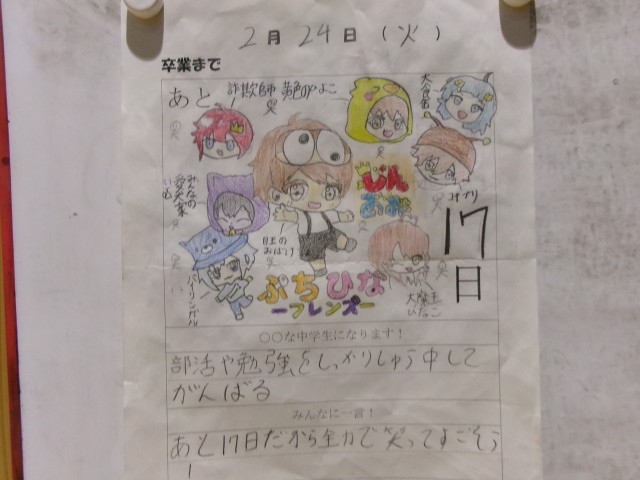 2月24日(火)
卒業まで
あと
詐欺師 黄色のひよこ
大食害
みんなの
愛犬家
目玉の
おばけ
じん
バイリンガル
17
日
ぷちひな
ーフレンズー
大魔王
ひなこ
〇〇な中学生になります!
部活や勉強をしっかりしゅう中して
がんばる
みんなに一言!
あと17日だから全力で笑ってすごそう
!